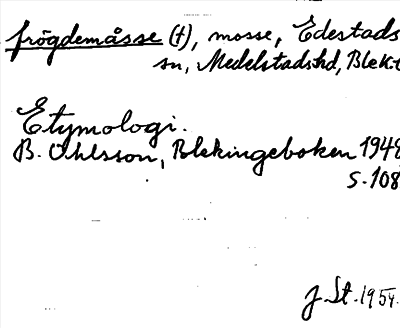 frögdemåsse (t), mosse, Edestads
sn, Medelstadshd, Blek
Etymologi.
B. Ohlsson, Blekingeboken 1948
s. 108
J. St. 1954.